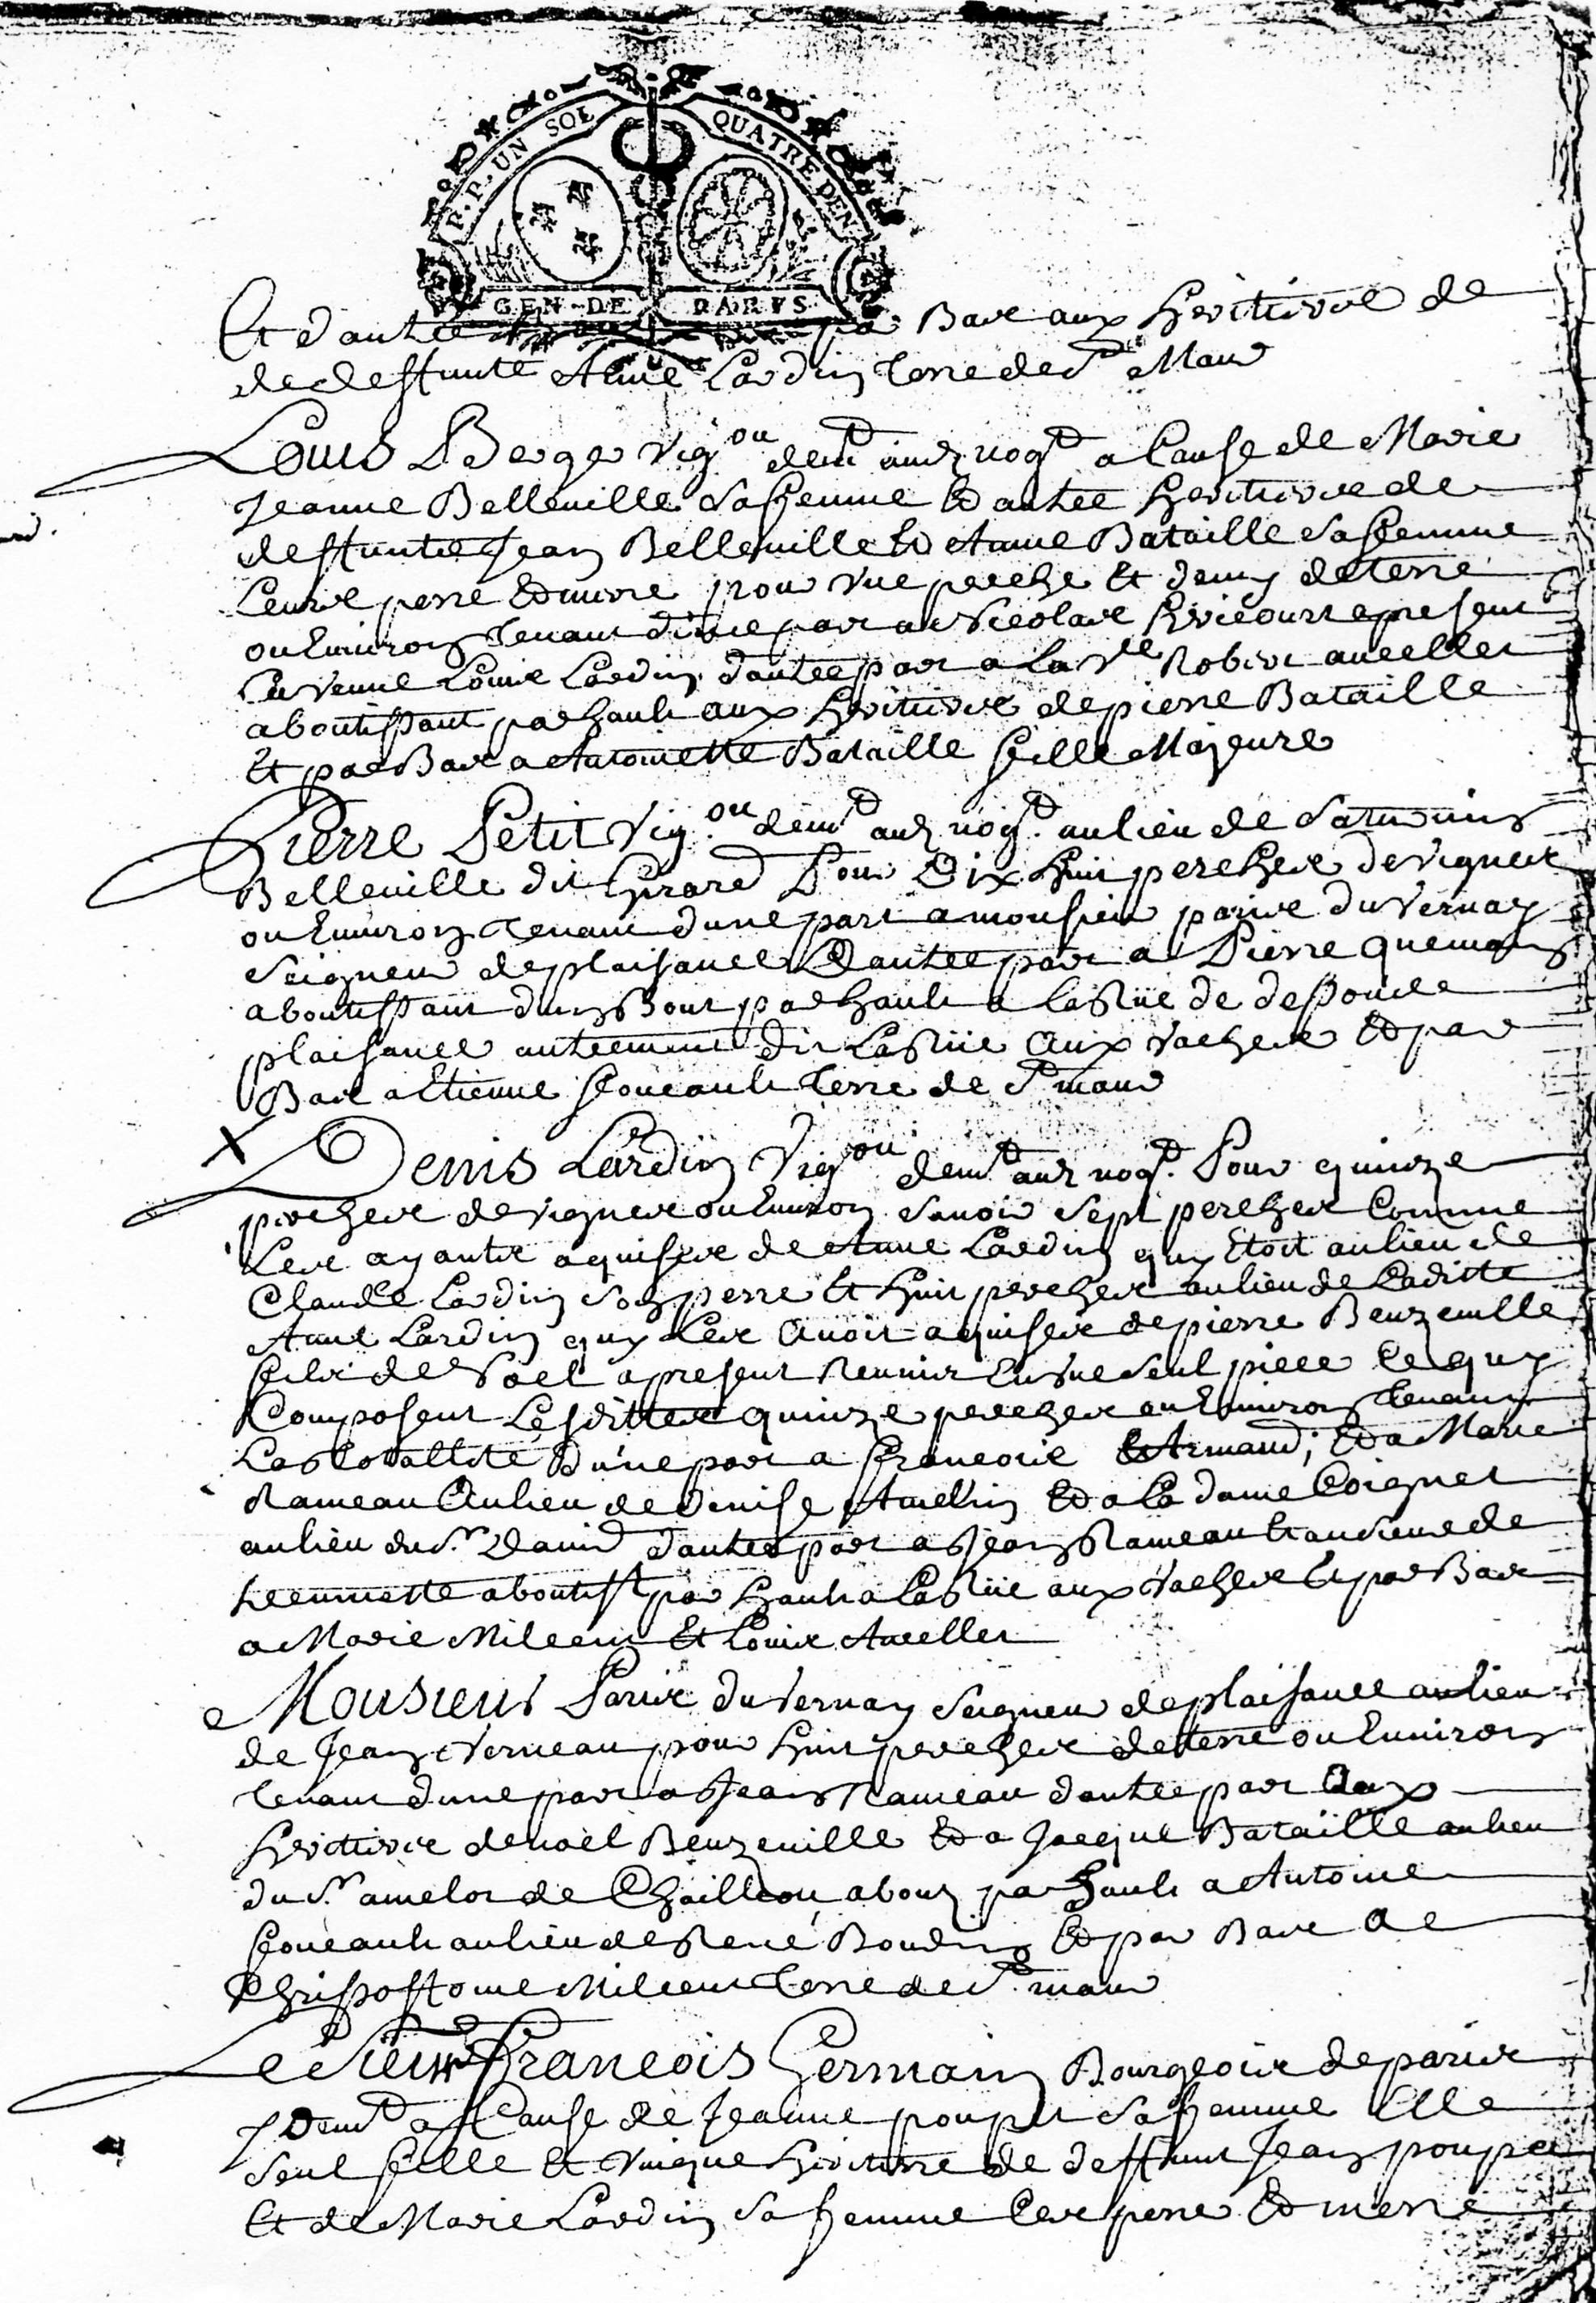 F. P. UN SOL QUATRE DEN
GEN. DE PARIS
Et d'autre par Bas aux heritiers de
de deffunte Anne Lardin terre de St Maur
Louis Berger Vigou demt aud nogt a Cause de Marie
Jeanne Belleville sa femme Et autre heritiere de
deffuntte Jean Belleville Et Anne Bataille sa femme
Leurs perre Et merre pour Une perche Et demy de terre
ou Environ Tenant d'une part a Nicolas hericourt apresent
La veuve Louis Lardin d'autre part a la Vle Robert aucellet
aboutissant par hault aux heritiers de pierre Bataille
Et par Bas a Antoinette Bataille fille Majeure
Pierre Petit Vig.ou demt aud nogt. au lieu de Saturnin
Belleville dit Girard Pour Dix huit perches de vignes
ou Environ Tenant d'une part a monsieur paris du Vernay
Seigneur de plaisance Et d'autre part a Pierre quemain
aboutissant d'un Bout par hault a la Rue de de
plaisance autrement dit La Rüe Aux Vaches Et par
Bas a Etienne foucault terre de St maur
X Denis Lardin Vigou demt aud nogt. Pour quinze
perches de vignes ou Environ Savoir sept perches Comme
Les ayante aquises de Anne Lardin quy Etoit au lieu de
Claude Lardin son perre Et huit perches au lieu de Laditte
Anne Lardin quy Les Avoit aquises de pierre Beuzeville
fils de Noel apresent Reunis En Une seul piece Ce quy
Composent Lesdittes quinze perches ou Environ tenant
La totallité D'une part a francois Armand, Et a Marie
Rameau Au lieu de Denise Aucellin Et a La dame Coignet
au lieu du Sr. David d'autre part a Jean Rameau Et aux de
aboutist par hault a La Rüe aux Vaches Et par Bas
a Marie Milcent Et Louis Aucellet
Monsieur Paris du Vernay Seigneur de plaisance au lieu
de Jean Verneau pour huit perches de terre ou Environ
tenant d'une part a Jean Rameau d'autre part Aux
heritiers de noël Beuzeville Et a Jacque Bataille au lieu
du Sr. amelot de Chaillou, about par hault a Antoine
foucault au lieu de René Boudin Et par Bas a
Chrissostome Milcent terre de St maur
Le Sieur Francois Germain Bourgeois de paris
y Demt a Cause de Jeanne poupet sa femme Elle
Seul fille Et Unique heritiere de deffunt Jean poupet
Et de Marie Lardin sa femme Ces perre Et merre